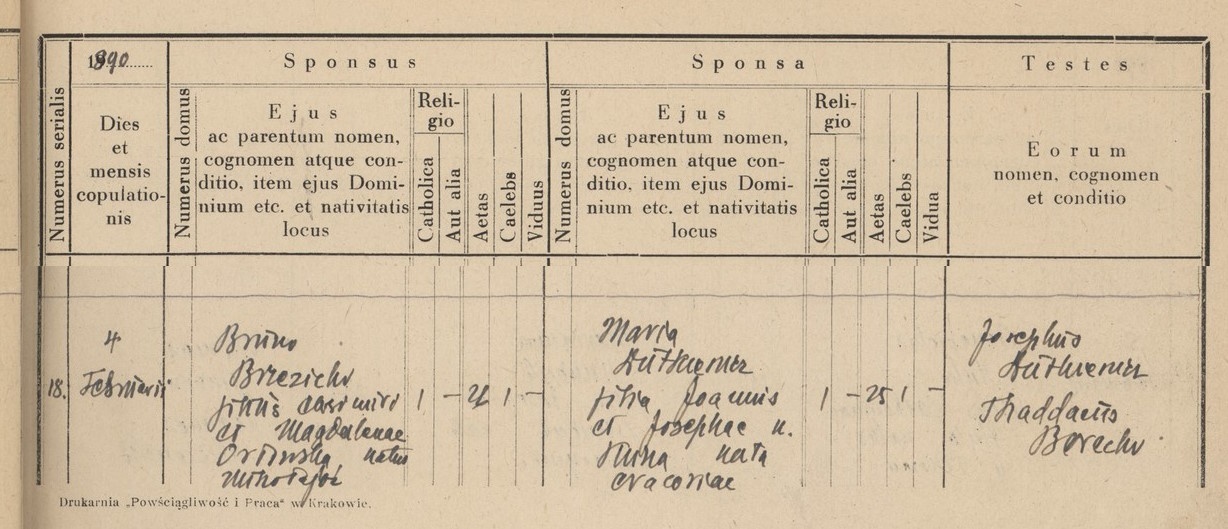 1890
Sponsus
Sponsa
Testes
Numerus serialis
Dies
et
mensis
copulatio-
nis
Numerus domus
Ejus
ac parentum nomen,
cognomen atque con-
ditio, item ejus Domi-
nium etc. et nativitatis
locus
Reli-
gio
Catholica
Aut alia
Aetas
Caelebs
Viduus
Numerus domus
Ejus
ac parentum nomen,
cognomen atque con-
ditio, item ejus Domi-
nium etc. et nativitatis
locus
Reli-
gio
Catholica
Aut alia
Aetas
Caelebs
Vidua
Eorum
nomen, cognomen
et conditio
18.
4
Februarii
Bruno
filius Casimiri
et Magdalenae
natus
1 – 1 –
Maria
filia Joannis
et Josephae n.
nata
Cracoviae
1 – 25 1 –
Josephus
Thaddaeus
Drukarnia „Powściągliwość i Praca“ w Krakowie.